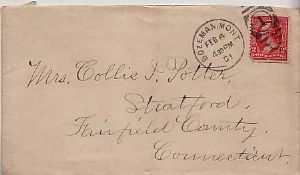 BOZEMAN, MONT.
FEB
4-30PM
01
Mrs. Collis I. Potter,
Stratford,
Fairfield County,
Connecticut.